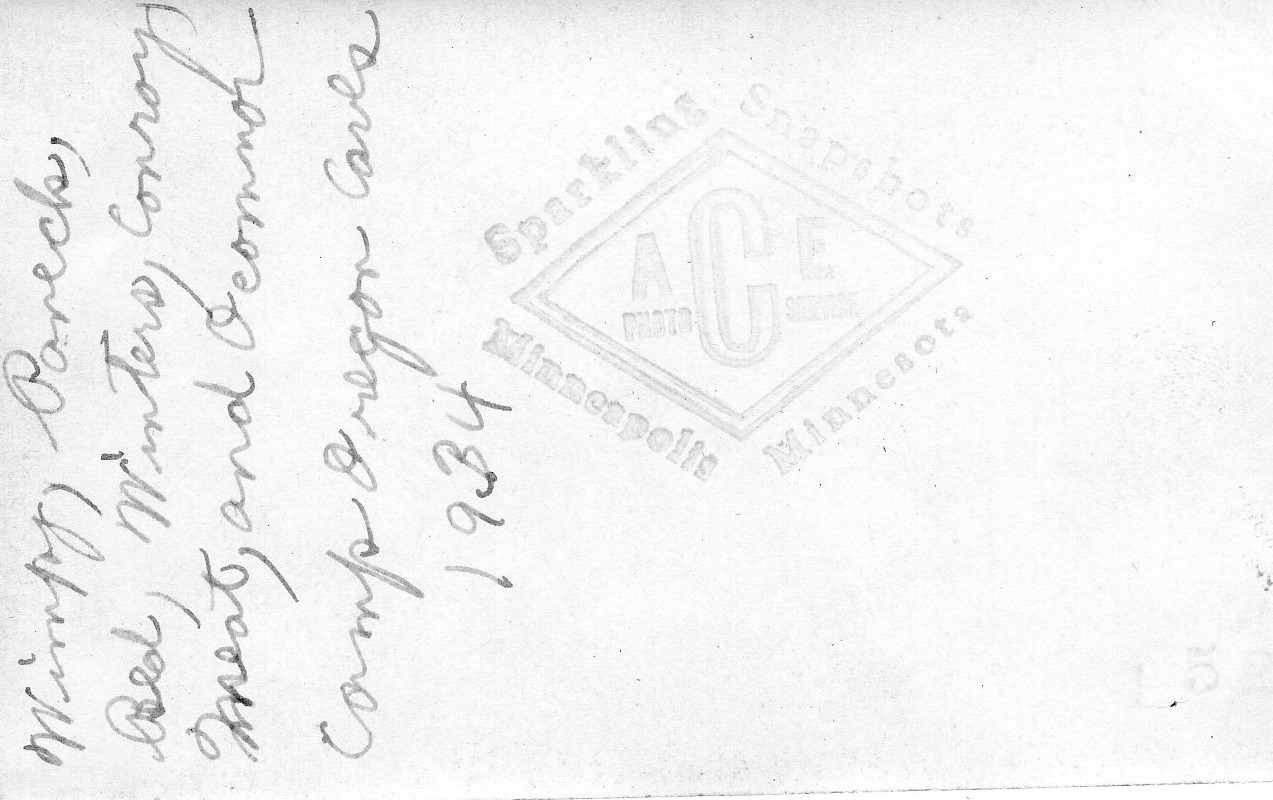 Wimpy, Parecks,
Red, Winters, Conroy
Meat, and Oconnor
Camp Oregon Caves
1934
Sparkling Snapshots
ACE
PHOTO SERVICE
Minneapolis Minnesota